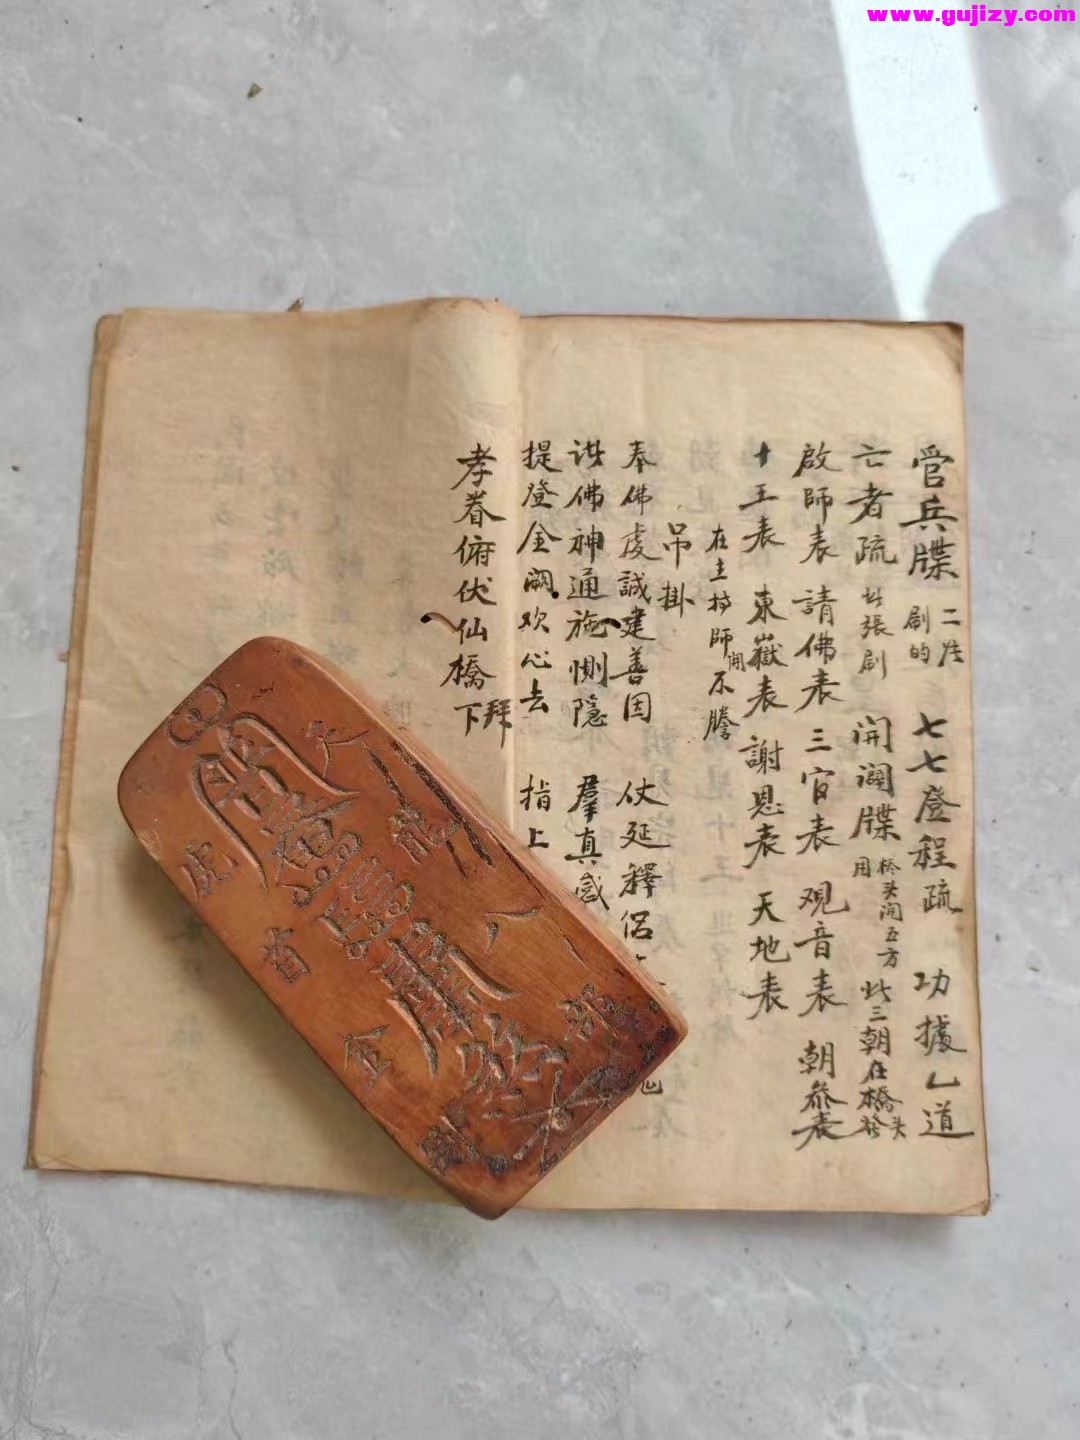 www.gujizy.com
管兵牒 二张刷的 七七登程疏 功據乚道
亡者疏 此張刷 開闢牒 桥头開五方用 此三朝在橋头
啟師表 請佛表 三官表 观音表 朝參表
十王表 東嶽表 謝恩表 天地表
在主持師開不謄
吊掛
奉佛虔誠建善因 仗延釋侣
訨佛神通施惻隐 羣真感
提登金阙欢心去 指上
孝眷俯伏仙橋下拜
天
龍
八
部
虎
首
合